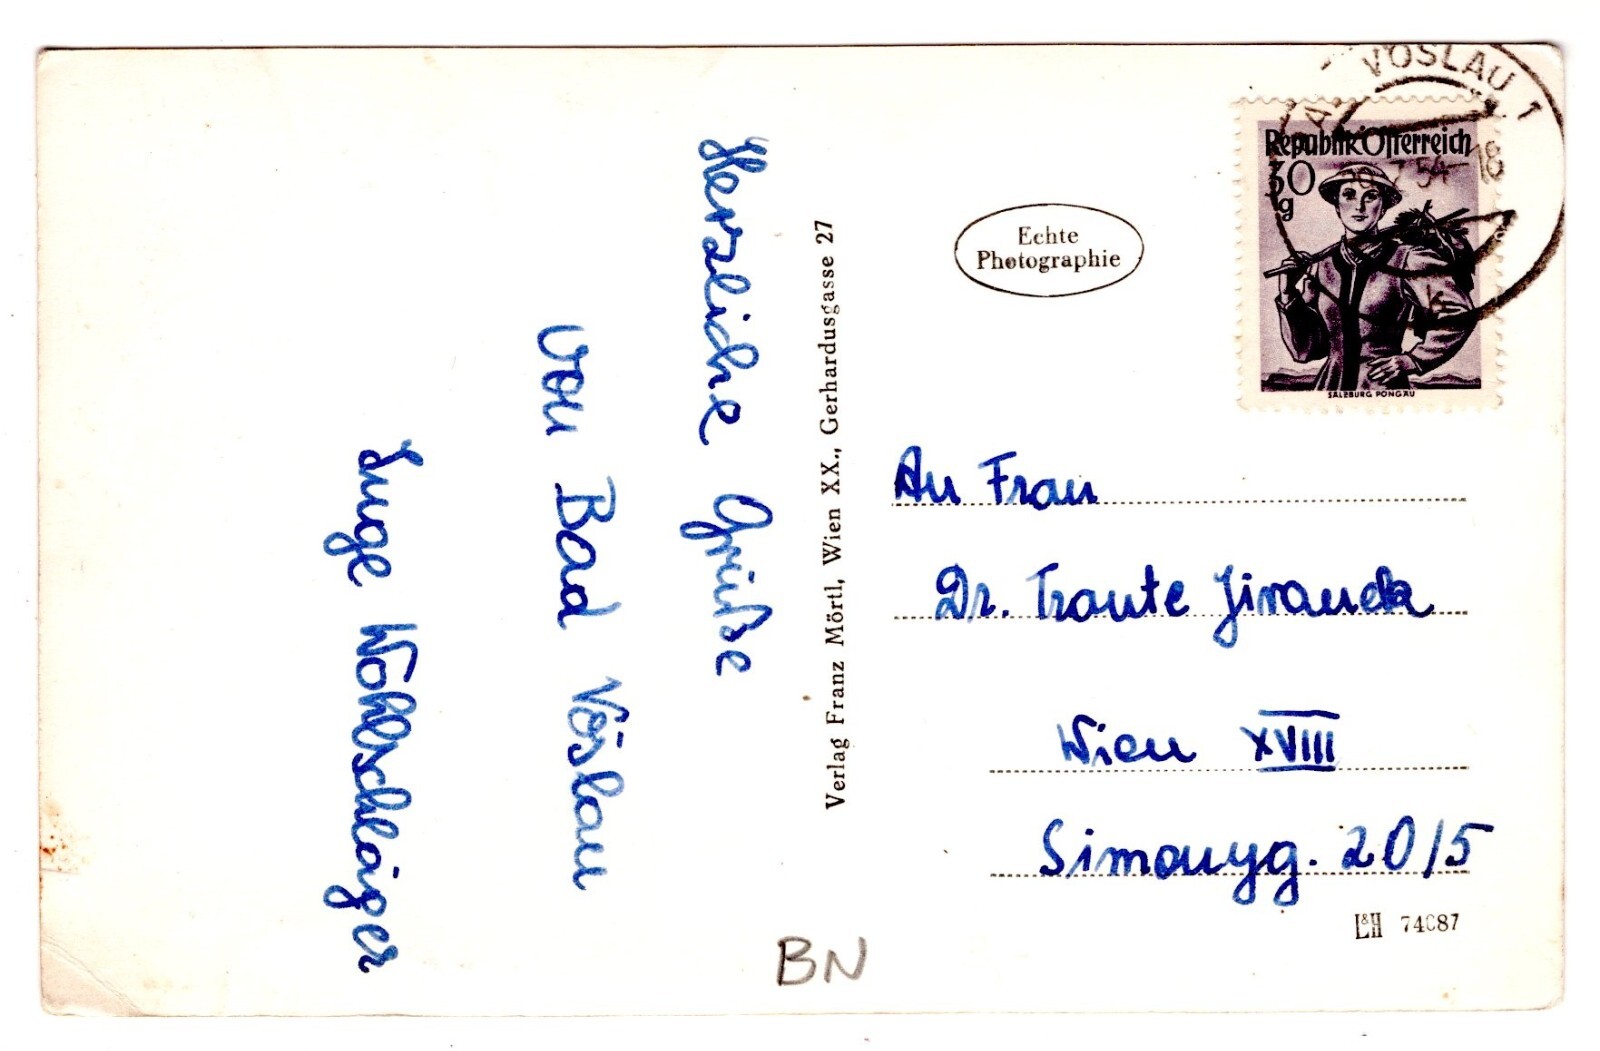 Herzliche Grüße
von Bad Vöslau
Inge Wohlschläger
Verlag Franz Mörtl, Wien XX., Gerhardusgasse 27
Echte
Photographie
VÖSLAU 1
7.54-18
Republik Österreich
30
g
SALZBURG PONGAU
An Frau
Dr. Traute Jirauck
Wien XVIII
Simonyg. 20/5
L&H 74087
BN